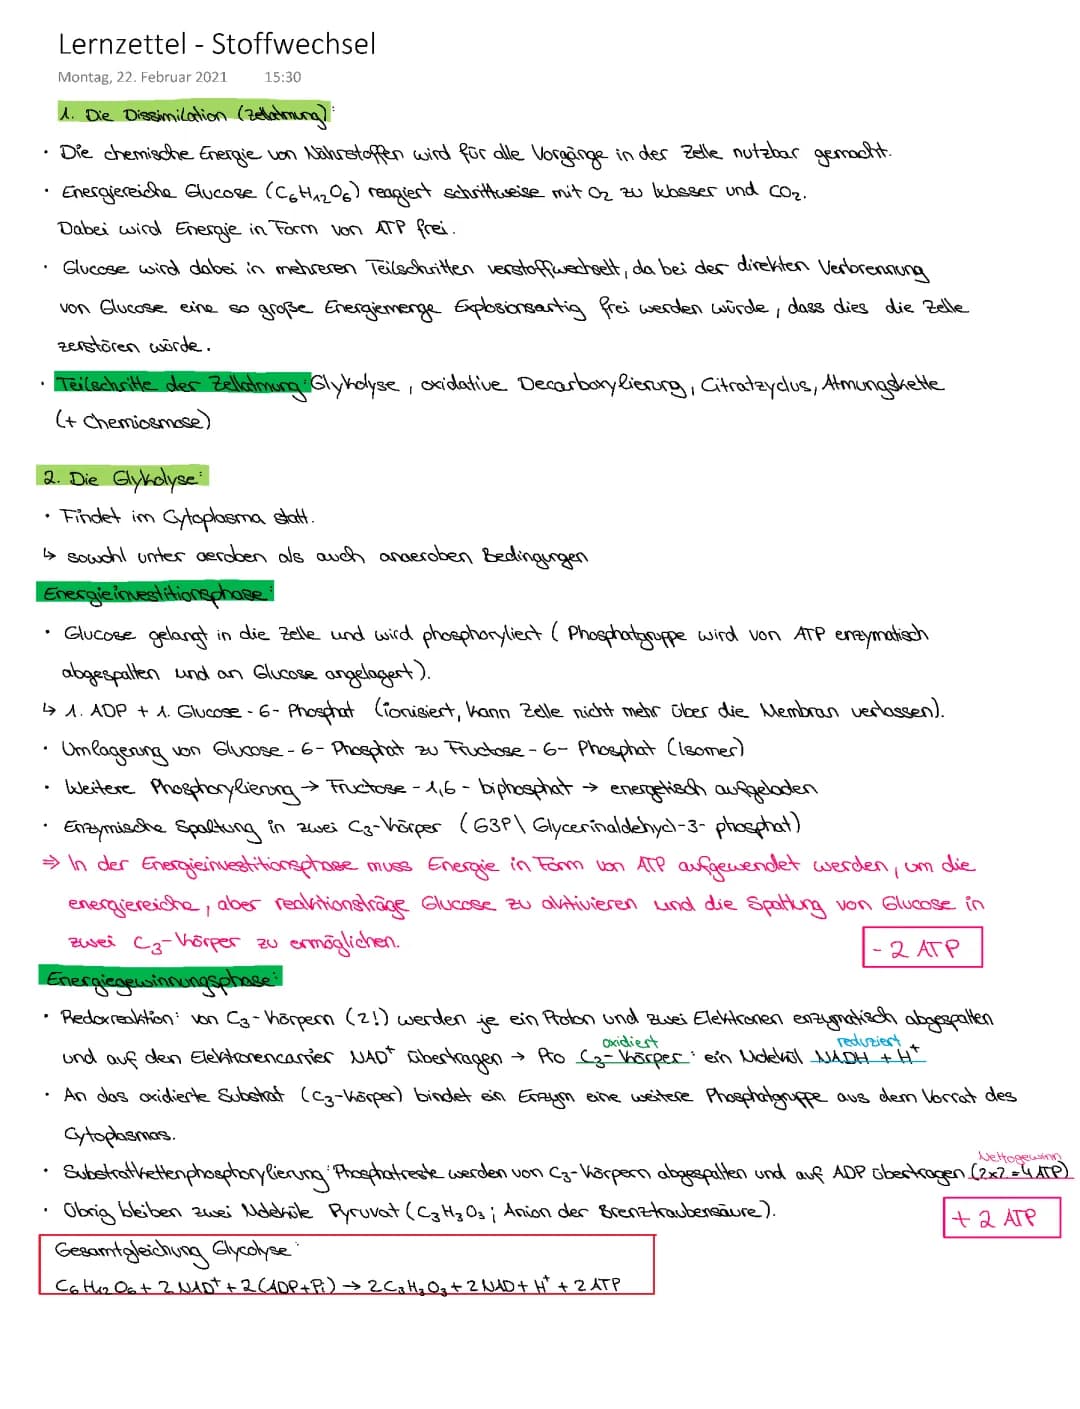 Lernzettel - Stoffwechsel
Montag, 22. Februar 2021 15:30
1. Die Dissimilation (Zellatmung):
· Die chemische Energie von Nährstoffen wird für alle Vorgänge in der Zelle nutzbar gemacht.
· Energiereiche Glucose (C₆H₁₂O₆) reagiert schrittweise mit O₂ zu Wasser und CO₂.
Dabei wird Energie in Form von ATP frei.
· Glucose wird dabei in mehreren Teilschritten verstoffwechselt, da bei der direkten Verbrennung
von Glucose eine so große Energiemenge Explosionsartig frei werden würde, dass dies die Zelle
zerstören würde.
· Teilschritte der Zellatmung: Glykolyse, oxidative Decarboxylierung, Citratzyclus, Atmungskette
(+ Chemiosmose)
2. Die Glykolyse:
· Findet im Cytoplasma statt.
↳ sowohl unter aeroben als auch anaeroben Bedingungen
Energieinvestitionsphase:
· Glucose gelangt in die Zelle und wird phosphoryliert (Phosphatgruppe wird von ATP enzymatisch
abgespalten und an Glucose angelagert).
↳ 1. ADP + 1. Glucose - 6 - Phosphat (ionisiert, kann Zelle nicht mehr über die Membran verlassen).
· Umlagerung von Glucose - 6 - Phosphat zu Fructose - 6 - Phosphat (Isomer)
· Weitere Phosphorylierung → Fructose - 1,6 - biphosphat → energetisch aufgeladen
· Enzymische Spaltung in zwei C₃-Körper (G3P\ Glycerinaldehyd-3- phosphat)
⇒ In der Energieinvestitionsphase muss Energie in Form von ATP aufgewendet werden, um die
energiereiche, aber reaktionsträge Glucose zu aktivieren und die Spaltung von Glucose in
zwei C₃-Körper zu ermöglichen.
- 2 ATP
Energiegewinnungsphase:
· Redoxreaktion: von C₃-Körpern (2!) werden je ein Proton und zwei Elektronen enzymatisch abgespalten
oxidiert reduziert
und auf den Elektronencarrier NAD⁺ übertragen → Pro C₃-Körper: ein Molekül NADH + H⁺
· An das oxidierte Substrat (C₃-Körper) bindet ein Enzym eine weitere Phosphatgruppe aus dem Vorrat des
Cytoplasmas.
Nettogewinn
· Substratkettenphosphorylierung: Phosphatreste werden von C₃-Körpern abgespalten und auf ADP übertragen (2x2=4 ATP)
· Übrig bleiben zwei Moleküle Pyruvat (C₃H₃O₃; Anion der Brenztraubensäure).
+ 2 ATP
Gesamtgleichung Glycolyse:
C₆H₁₂O₆ + 2 NAD⁺ + 2 (ADP+Pi) → 2 C₃H₃O₃ + 2 NAD + H⁺ + 2 ATP